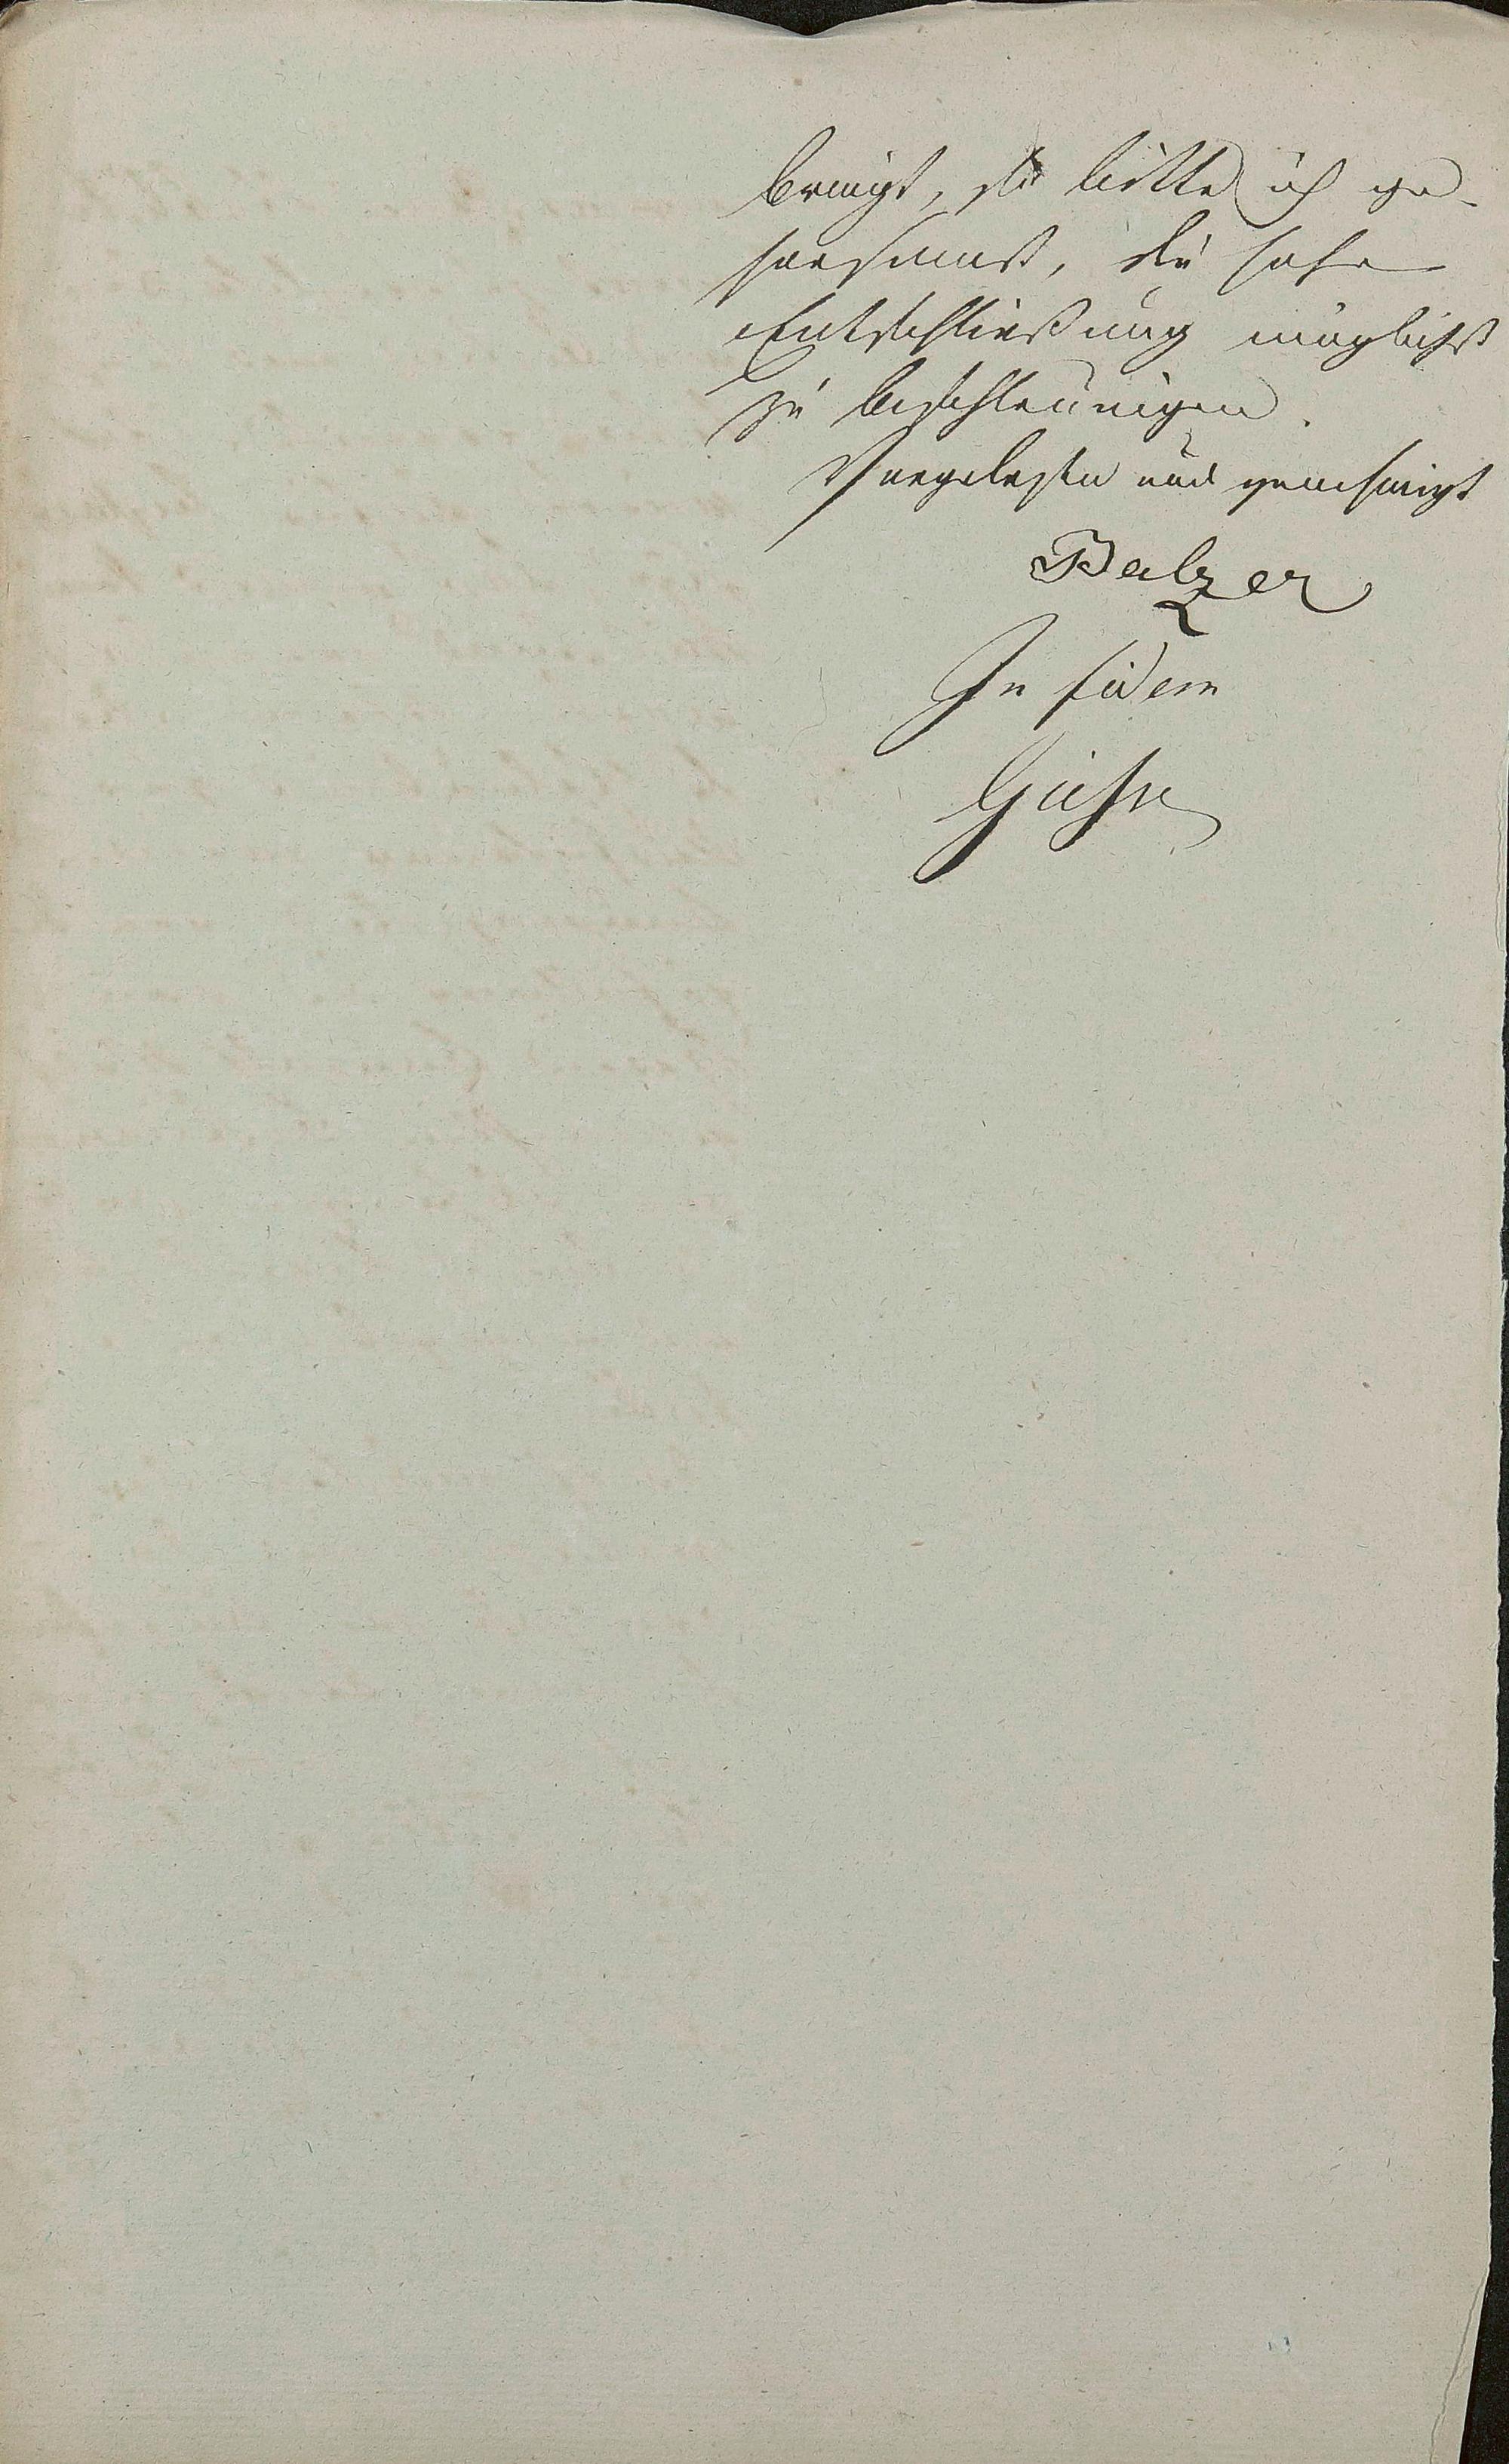 bringt, so bitte ich ge-
horsamst, die hohe
Entschließung möglichst
zu beschleunigen.
Vorgelesen und genehmigt
Balzer
In fidem